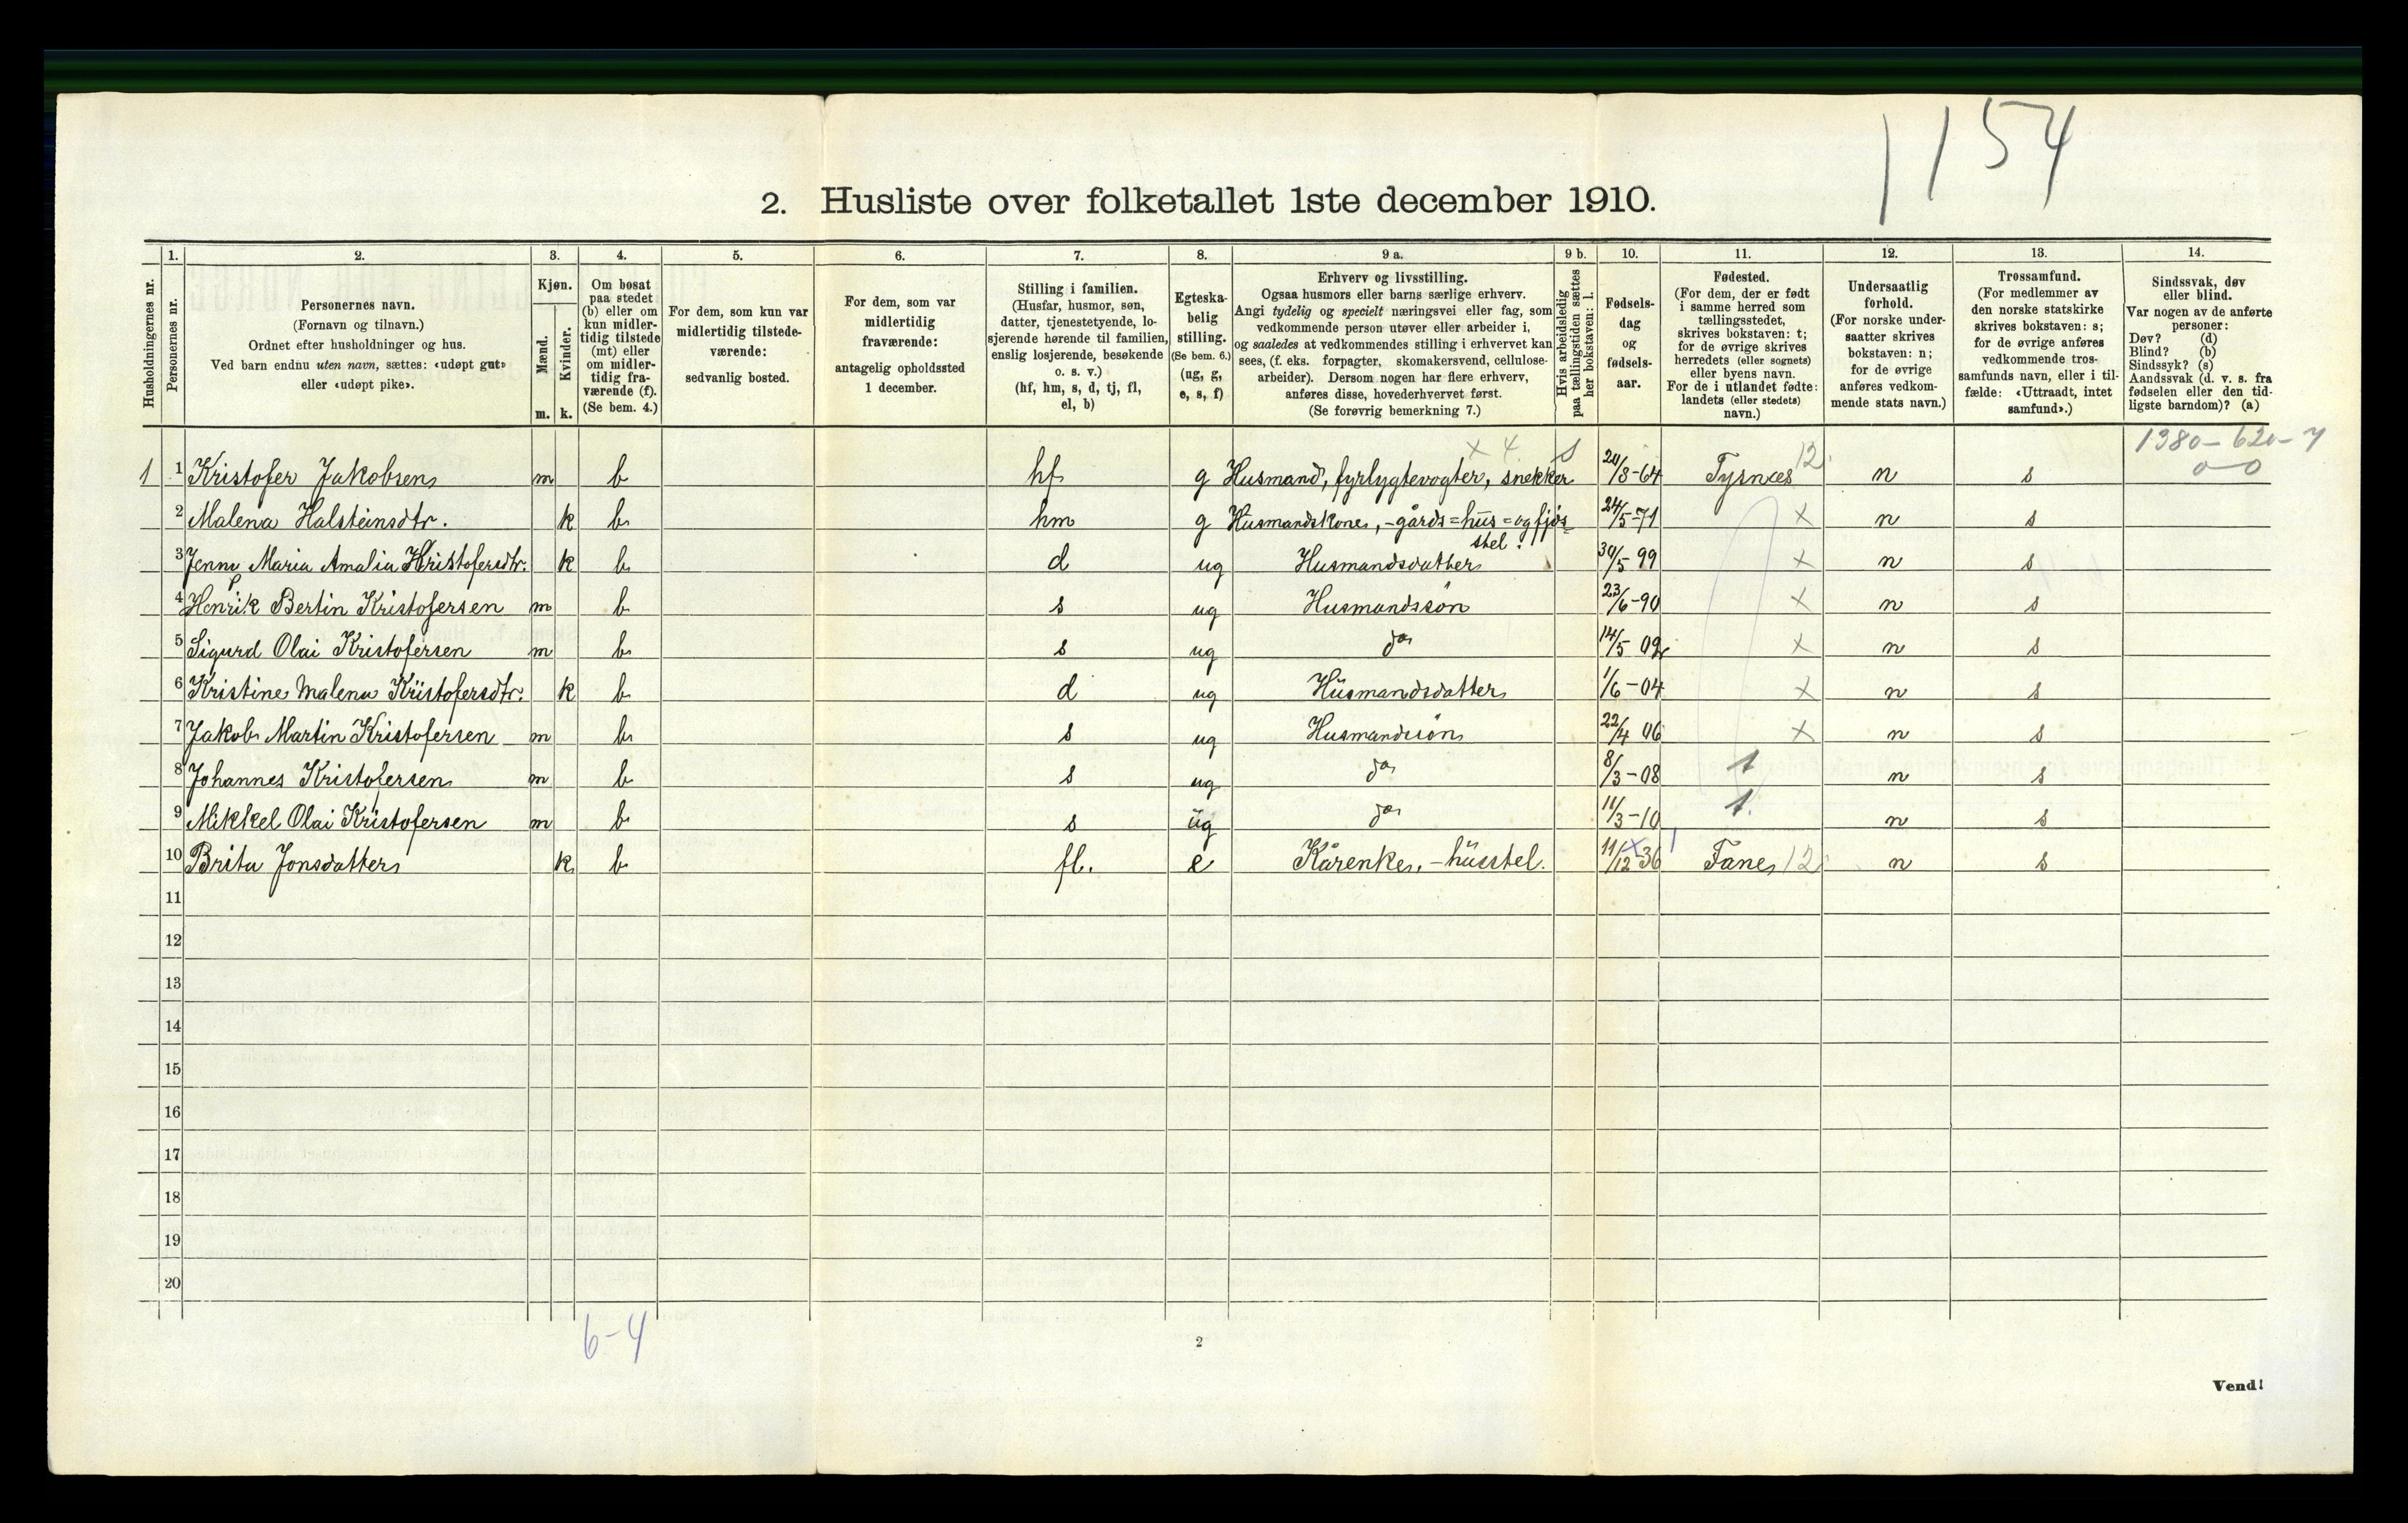 1154
2. Husliste over folketallet 1ste december 1910.
1. 2. 3. 4. 5. 6. 7. 8. 9 a. 9 b. 10. 11. 12. 13. 14.
Husholdningernes nr.
Personernes nr.
Personernes navn.
(Fornavn og tilnavn.)
Ordnet efter husholdninger og hus.
Ved barn endnu uten navn, sættes: «udøpt gut»
eller «udøpt pike».
Kjøn.
Mænd.
Kvinder.
m. k.
Om bosat
paa stedet
(b) eller om
kun midler-
tidig tilstede
(mt) eller
om midler-
tidig fra-
værende (f).
(Se bem. 4.)
For dem, som kun var
midlertidig tilstede-
værende:
sedvanlig bosted.
For dem, som var
midlertidig
fraværende:
antagelig opholdssted
1 december.
Stilling i familien.
(Husfar, husmor, søn,
datter, tjenestetyende, lo-
sjerende hørende til familien,
enslig losjerende, besøkende
o. s. v.)
(hf, hm, s, d, tj, fl,
el, b)
Egteska-
belig
stilling.
(Se bem. 6.)
(ug, g,
e, s, f)
Erhverv og livsstilling.
Ogsaa husmors eller barns særlige erhverv.
Angi tydelig og specielt næringsvei eller fag, som
vedkommende person utøver eller arbeider i,
og saaledes at vedkommendes stilling i erhvervet kan
sees, (f. eks. forpagter, skomakersvend, cellulose-
arbeider). Dersom nogen har flere erhverv,
anføres disse, hovederhvervet først.
(Se forøvrig bemerkning 7.)
Hvis arbeidsledig
paa tællingstiden sættes
her bokstaven: l.
Fødsels-
dag
og
fødsels-
aar.
Fødested.
(For dem, der er født
i samme herred som
tællingsstedet,
skrives bokstaven: t;
for de øvrige skrives
herredets (eller sognets)
eller byens navn.
For de i utlandet fødte:
landets (eller stedets)
navn.)
Undersaatlig
forhold.
(For norske under-
saatter skrives
bokstaven: n;
for de øvrige
anføres vedkom-
mende stats navn.)
Trossamfund.
(For medlemmer av
den norske statskirke
skrives bokstaven: s;
for de øvrige anføres
vedkommende tros-
samfunds navn, eller i til-
fælde: «Uttraadt, intet
samfund».)
Sindssvak, døv
eller blind.
Var nogen av de anførte
personer:
Døv? (d)
Blind? (b)
Sindssyk? (s)
Aandssvak (d. v. s. fra
fødselen eller den tid-
ligste barndom)? (a)
x 4. 1380-620-4
0-0
1 1 Kristofer Jakobsen m b hf g Husmand, fyrlygtevogter, snekker 20/8-64 Tysnæs 12 n s
2 Malena Halsteinsdtr. k b hm g Husmandskone, -gårds=hus=og fjøs=
stel. 24/5-71 x n s
3 Jenny Maria Amalia Kristofersdtr. k b d ug Husmandsdatter 30/5 99 x n s
4 Henrik Bertin Kristofersen m b s ug Husmandssøn 23/6-90 x n s
5 Sigurd Olai Kristofersen m b s ug do 14/5 02 x n s
6 Kristine Malena Kristofersdtr. k b d ug Husmandsdatter 1/6-04 x n s
7 Jakob Martin Kristofersen m b s ug Husmandssøn 22/4 06 x n s
8 Johannes Kristofersen m b s ug do 8/3-08 t n s
9 Mikkel Olai Kristofersen m b s ug do 11/3-10 t. n s
10 Brita Jonsdatter k b fl. e Kårenke, -husstel. 11/12-36 Fane 12 n s
11
12
13
14
15
16
17
18
19
20
6-4
2
Vend!